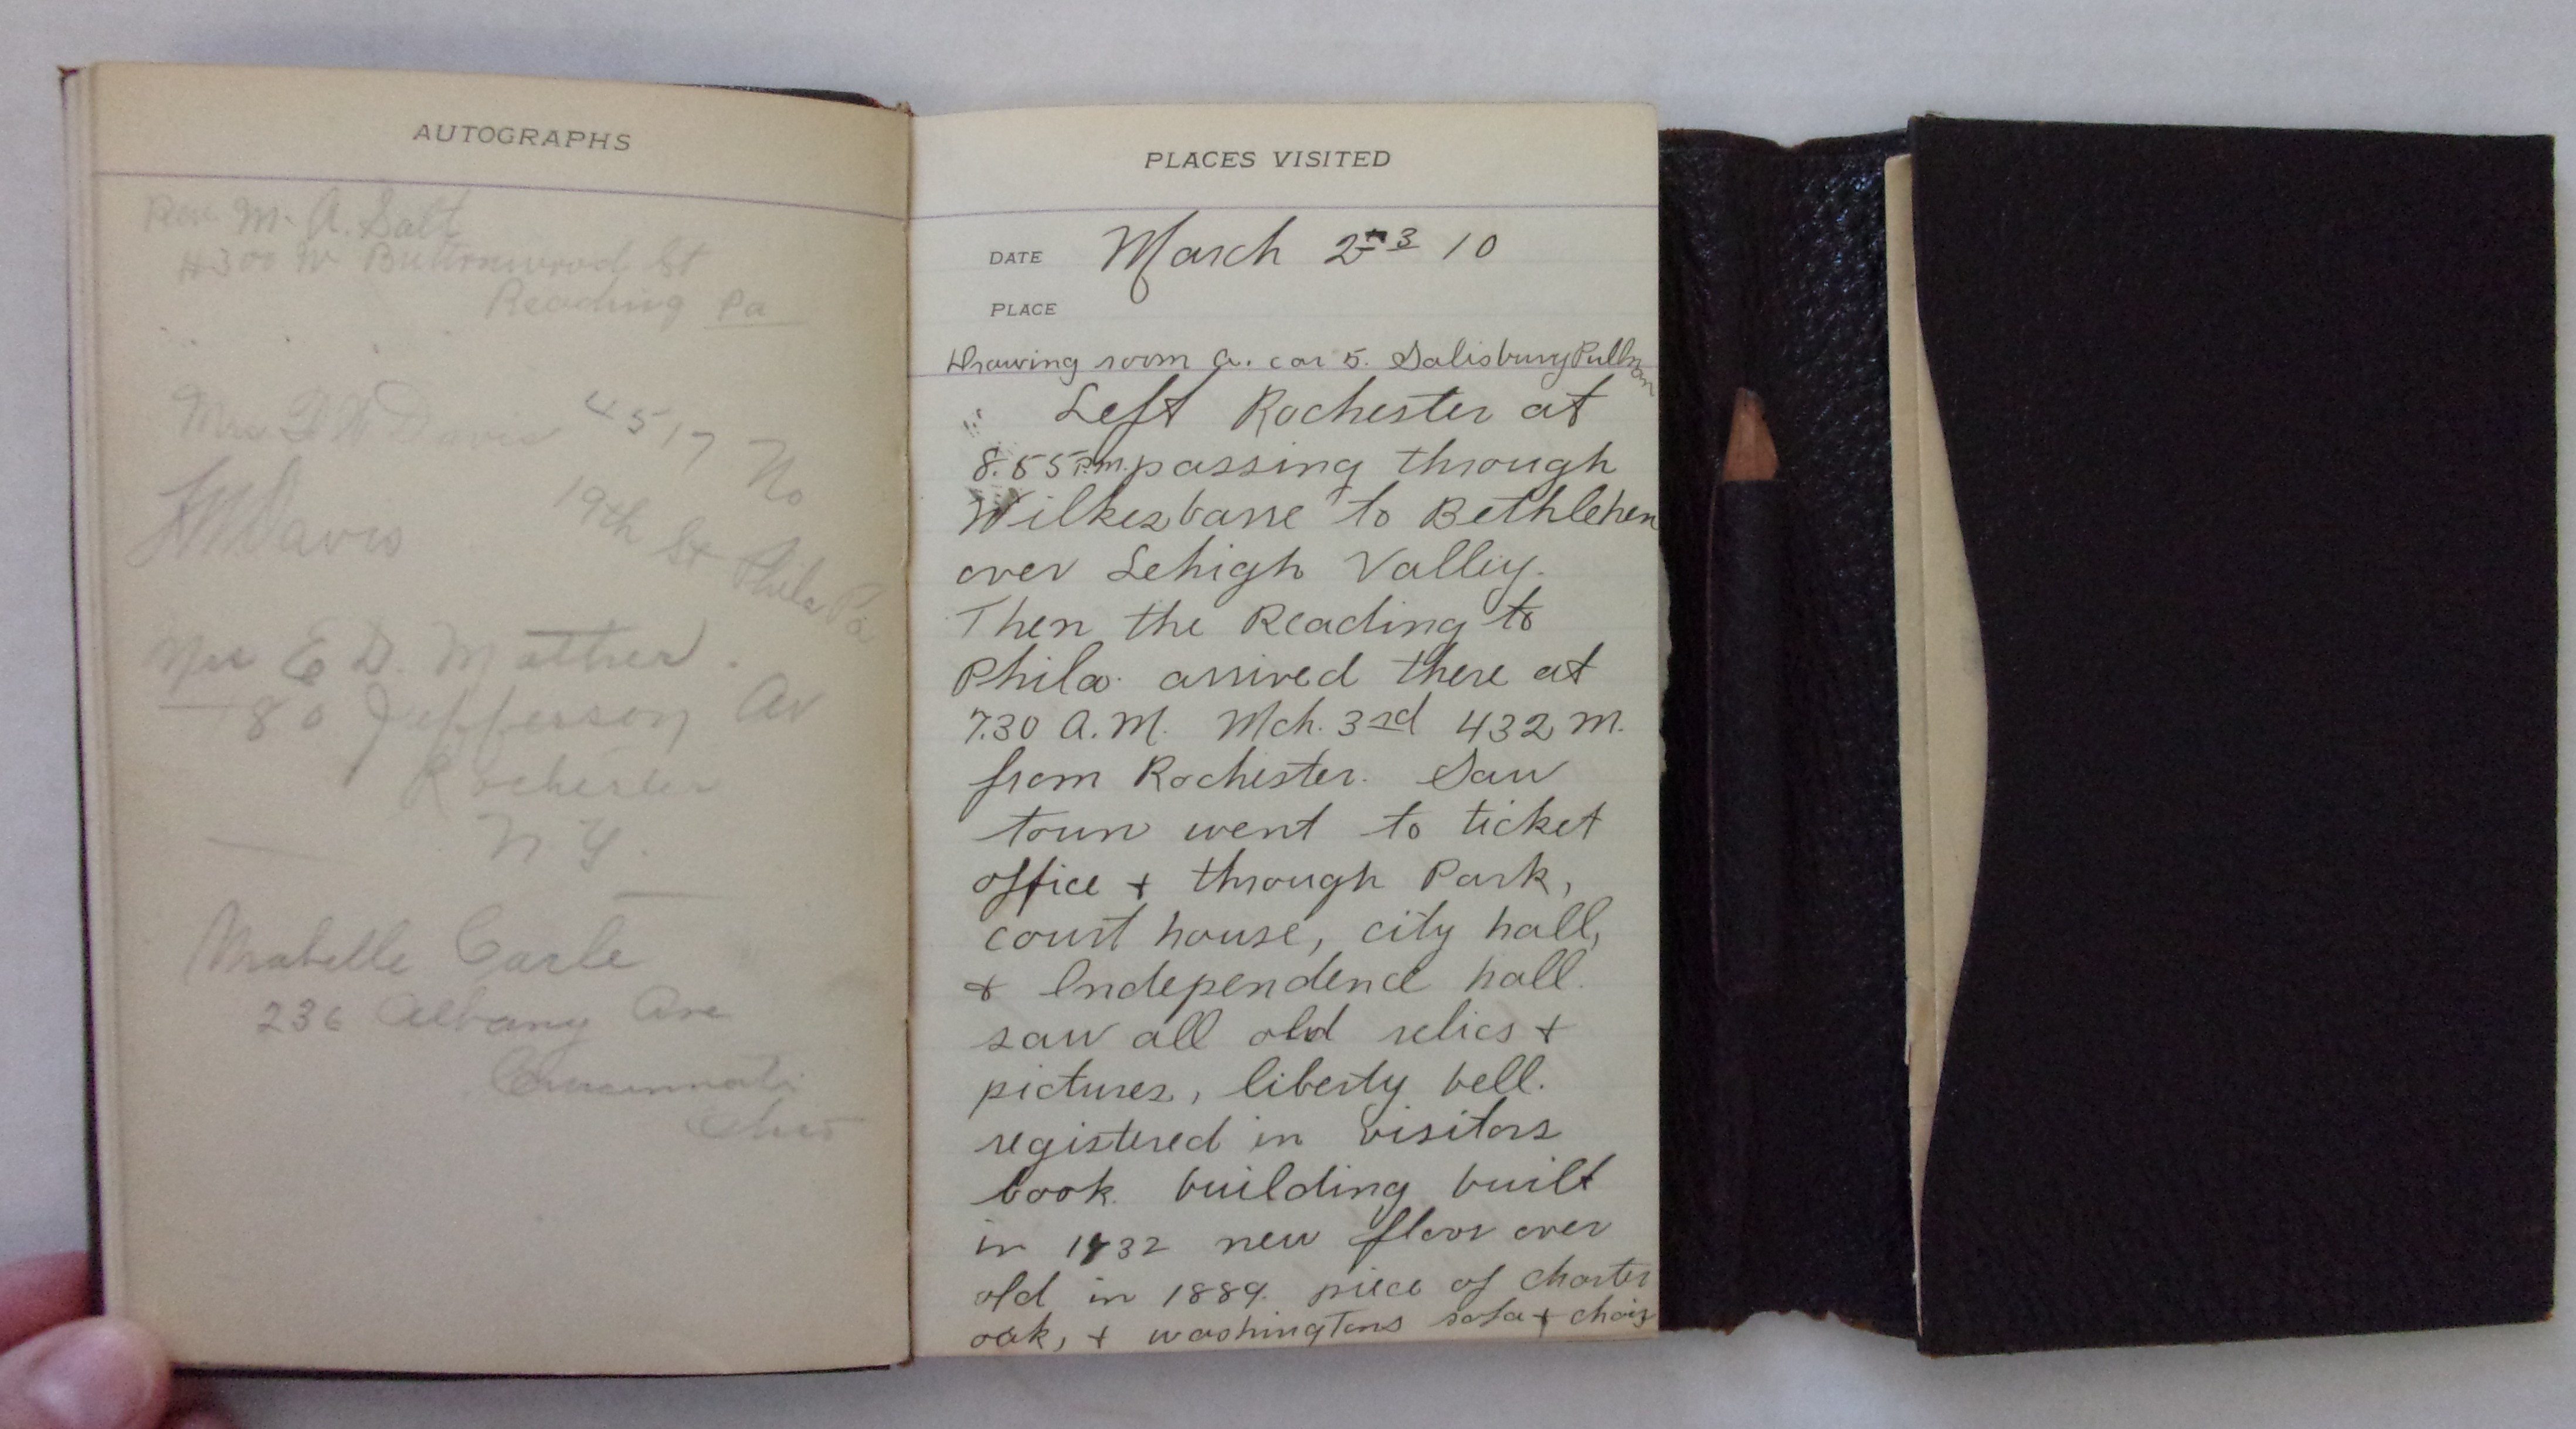 AUTOGRAPHS
Rev. M. A. Salt
#300 W Buttonwood St
Reading Pa
Mrs D W Davis 4517 No
19th St Phila Pa
Davis
Mrs E D. Mather.
780 Jefferson Av
Rochester
N Y.
Mabelle Carle
236 Albany Ave
Cincinnati
Ohio
PLACES VISITED
DATE March 2nd 3 10
PLACE
Drawing room A. car 5. Salisbury Pullman
Left Rochester at
8.55 P.M. passing through
Wilkesbarre to Bethlehem
over Lehigh Valley.
Then the Reading to
Phila. arrived there at
7.30 A.M. Mch. 3rd 432 m.
from Rochester. Saw
town went to ticket
office + through Park,
court house, city hall,
+ Independence hall.
saw all old relics +
pictures, liberty bell.
registered in visitors
book. building built
in 1732 new floor over
old in 1889. piece of charter
oak, + washingtons sofa + chair